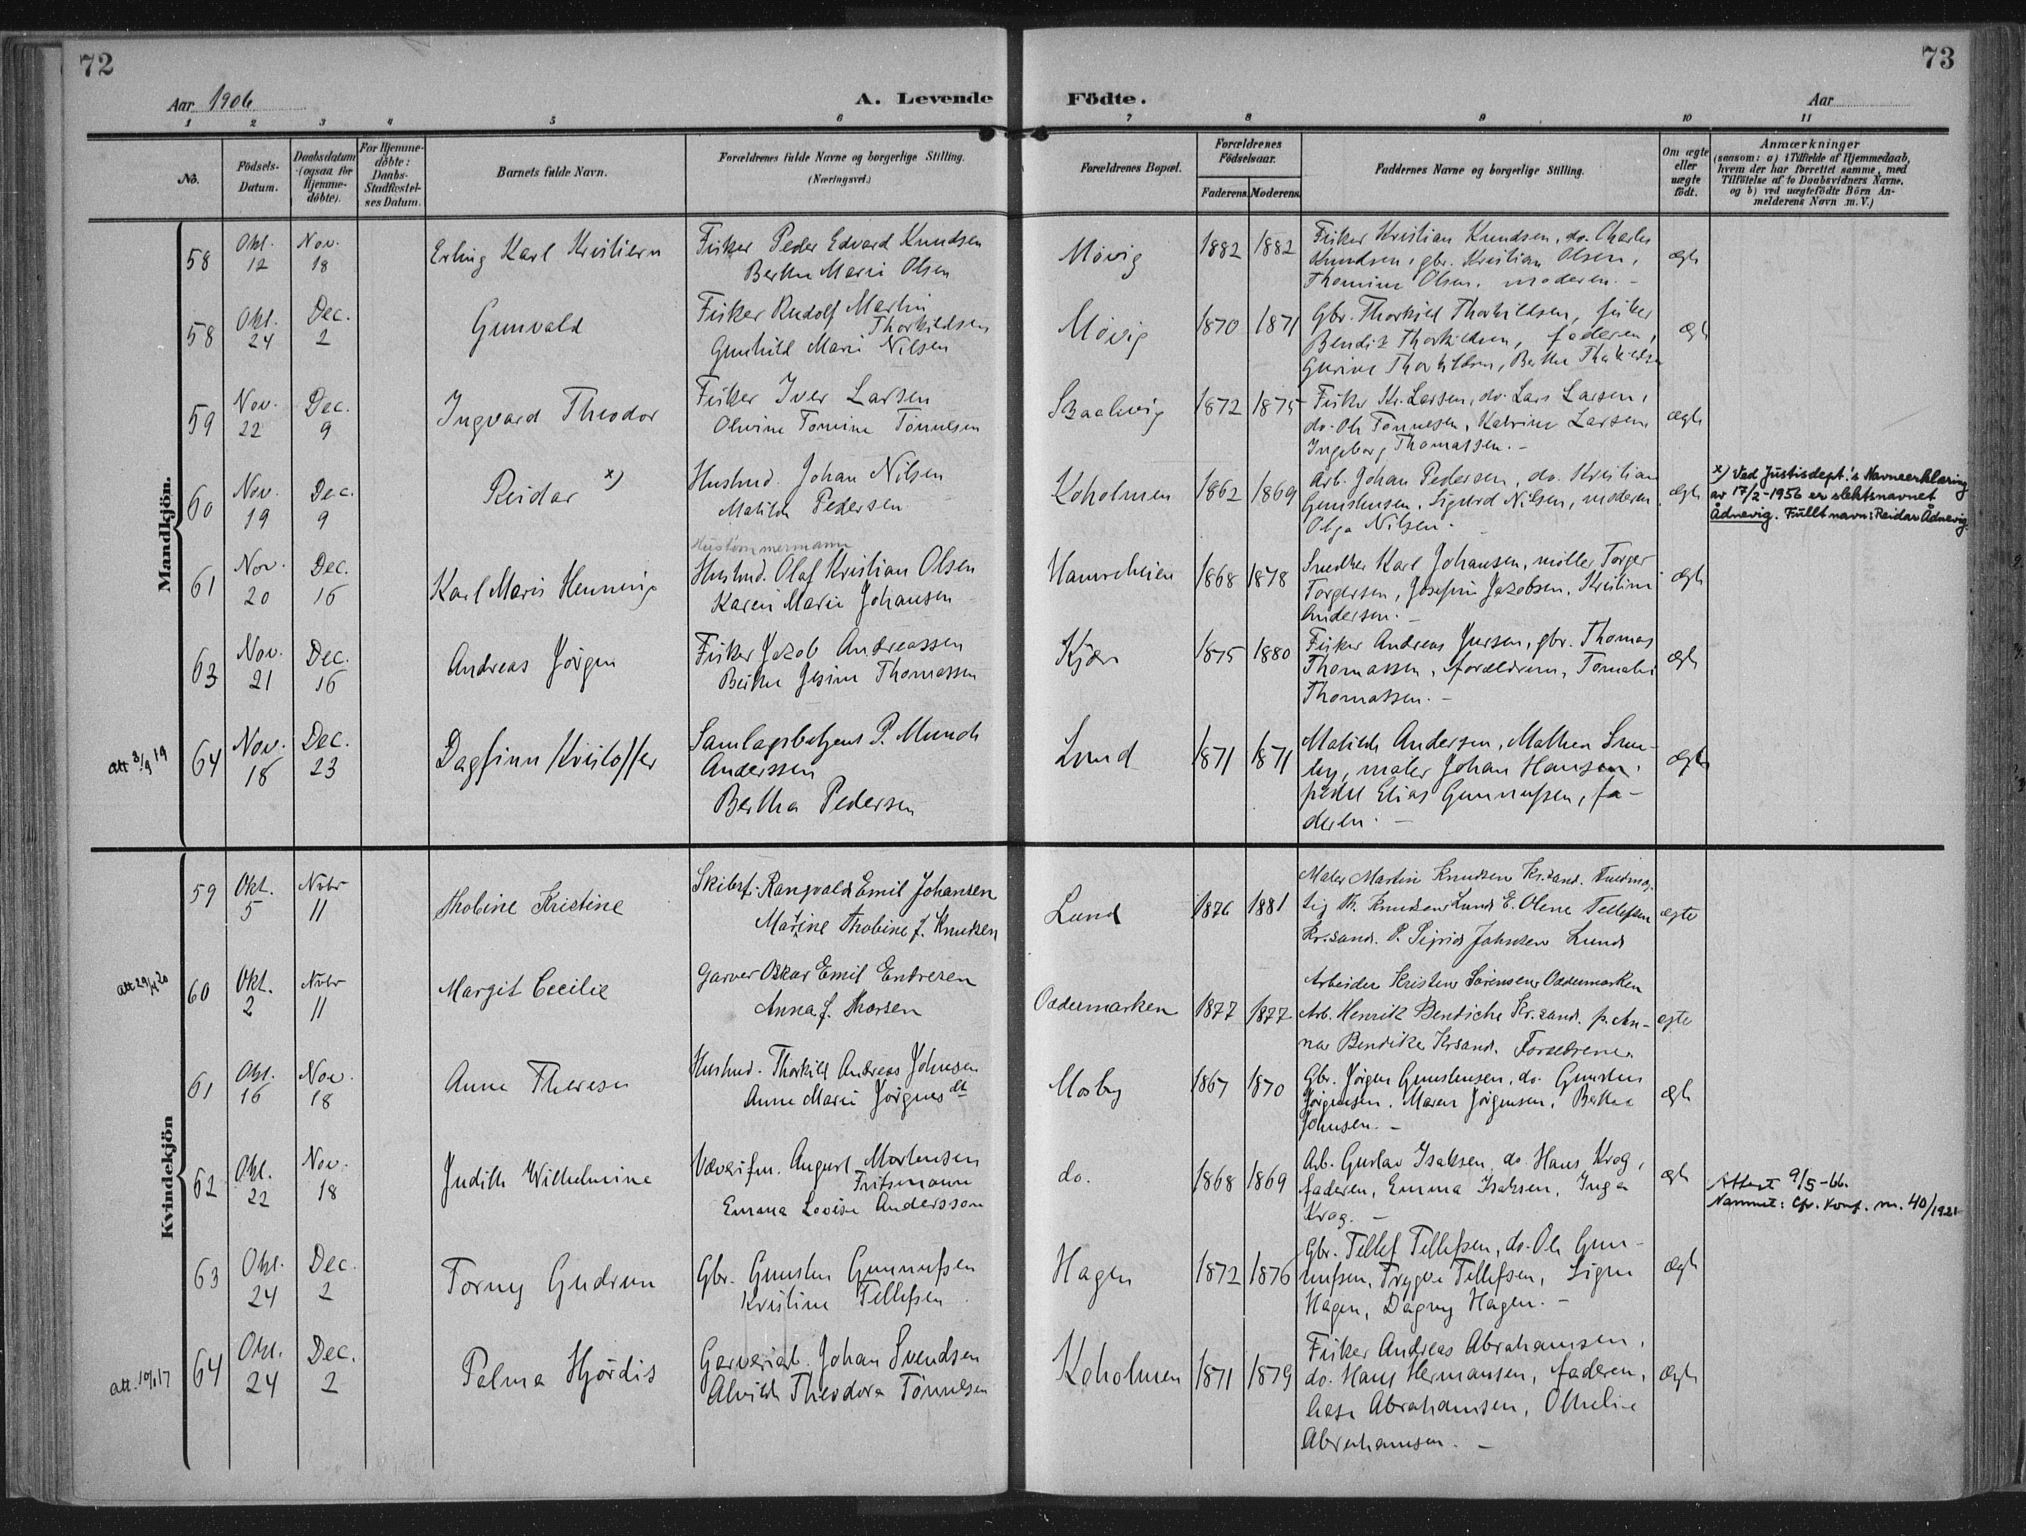 72
73
Aar 1906
A. Levende Födte.
Aar
1 2 3 4 5 6 7 8 9 10 11
No.
Födsels-Datum.
Daabsdatum (ogsaa for Hjemme-döbte).
For Hjemme-döbte: Daabs-Stadfæstel-ses Datum.
Barnets fulde Navn.
Forældrenes fulde Navne og borgerlige Stilling. (Næringsvei.)
Forældrenes Bopæl.
Forældrenes Födselsaar.
Faderens. Moderens.
Faddernes Navne og borgerlige Stilling.
Om ægte eller uægte födt.
Anmærkninger
(saasom: a) i Tilfælde af Hjemmedaab,
hvem der har forrettet samme, med
Tilföielse af to Daabsvidners Navne,
og b) ved uægtefödte Börn An-
melderens Navn m. V.)
Mandkjön.
58 Okt. 12 Nov. 18 Erling Karl Kristiern
Fisker Peder Edvard Knudsen
Berthe Marie Olsen
Møvig 1882 1882
Fisker Kristian Knudsen, do. Charles
Knudsen, gbr. Kristian Olsen,
Thomine Olsen, moderen. -
ægte
58 Okt. 24 Dec. 2 Gunvald
Fisker Rudolf Martin
Thorkildsen
Gunhild Marie Nilsen
Møvig 1870 1871
Gbr. Thorkild Thorkildsen, fisker
Bendix Thorkildsen, faderen,
Gurine Thorkildsen, Berthe Thorkildsen
ægte
59 Nov. 22 Dec. 9 Ingvard Theodor
Fisker Iver Larsen
Olivine Tomine Tönnesen
1872 1875
Fisker Kr. Larsen, do. Lars Larsen,
do. Ole Tönnesen, Katrine Larsen
Ingeborg Thomassen. -
ægte
60 Nov. 19 Dec. 9 Reidar x)
Husmd. Johan Nilsen
Matilde Pedersen
Koholmen 1862 1869
Arb. Johan Pedersen, do. Kristian
Gunstensen, Sigurd Nilsen, moderen
Olga Nilsen.
ægte
x) Ved Justisdept.'s Navneerklæring
av 17/2-1956 er slektsnavnet
Ådnevig. Fullt navn: Reidar Ådnevig.
61 Nov. 20 Dec. 16 Karl Maris Henning
Hustømmermann
Husmd. Olaf Kristian Olsen
Karen Marie Johansen
Hamreheien 1868 1878
Smedker Karl Johansen, møller Torger
Torgersen, Josefine Jacobsen, Kristine
Andersen. -
ægte
63 Nov. 21 Dec. 16 Andreas Jörgen
Fisker Jacob Andreassen
Berthe Jesine Thomassen
Kjær 1875 1880
Fisker Andreas Jensen, gbr. Thomas
Thomassen, forældrene, Tomalie
Thomassen. -
ægte
att 3/9 19
64 Nov. 18 Dec. 23 Dagfinn Kristoffer
Samlagsbetjent P. Munch
Anderssen
Bertha Pedersen
Lund 1871 1871
Matilde Andersen, Mathea
maler Johan Hansen,
pedel Elias Gunnufsen, fa-
deren. -
ægte
Kvindekjön
59 Okt. 5 Nvbr 11 Thobine Kristine
Skibsf. Rangvald Emil Johansen
Martine Thobine f. Knudsen
Lund 1876 1881
Maler Martin Knudsen Kr.sand.
Th. Knudsen Lund E. Olene Tellefsen
Kr.sand. P. Sigrid Johnsen Lund
ægte
att 29/4 20
60 Okt. 2 Nvbr 11 Margit Cecilie
Garver Oskar Emil Endresen
Anna f. Thorsen
Oddermarken 1877 1877
Arbeider Kristen Sörensen Oddermarken
Arb. Henrik Bendicke Kr.sand. p. An-
na Bendike Krsand. Forældrene.
ægte
61 Okt. 16 Nov. 18 Anne Therese
Husmd. Thorkild Andreas Johnsen
Anne Marie Jörgensdt
Mosby 1867 1870
Gbr. Jörgen Gunstensen, do. Gunsten
Jörgensen, Maren Jörgensen, Berthe
Johnsen. -
ægte
62 Okt. 22 Nov. 18 Judith Wilhelmine
Væverifm. August Mortensen
Fritsmann
Emma Lovise Andersson
do. 1868 1869
Arb. Gustav Isaksen, do. Hans Krog,
faderen, Emma Isaksen, Inga
Krog. -
ægte
Attest 9/5-66.
Navnet: Cfr. Konf. nr. 40/1921
63 Okt. 24 Dec. 2 Torny Gudrun
Gbr. Gunsten Gunnufsen
Kristine Tellefsen
Hagen 1872 1876
Gbr. Tellef Tellefsen, do. Ole Gun-
nufsen, Trygve Tellefsen, Signe
Hagen, Dagny Hagen. -
ægte
att. 10/1 17
64 Okt. 24 Dec. 2 Palma Hjördis
Garveriarb. Johan Svendsen
Alvilde Theodora Tönnesen
Koholmen 1871 1879
Fisker Andreas Abrahamsen,
do. Hans Hermansen, faderen,
Abrahamsen, Othelie
Abrahamsen. -
ægte